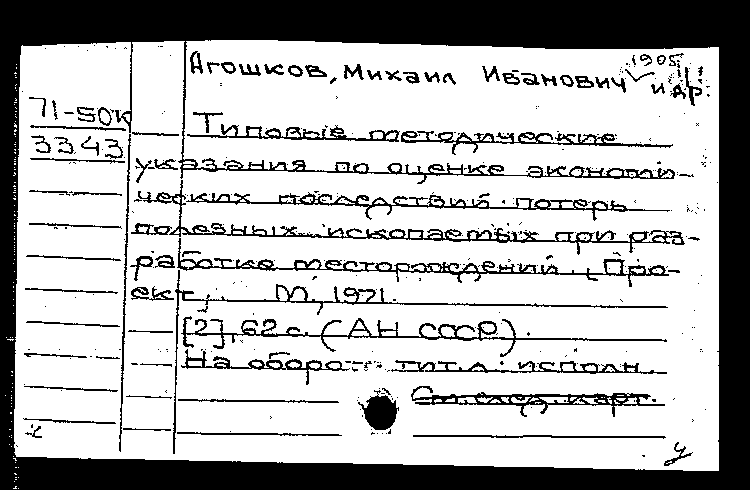 1905
Агошков, Михаил Иванович и др.
71-50К
3343
Типовые методические
указания по оценке экономи-
ческих последствий потерь
полезных ископаемых при раз-
работке месторождений. [Про-
ект]. М., 1971.
[2], 62 с. (АН СССР).
На обороте тит. л.: исполн.
См. след. карт.